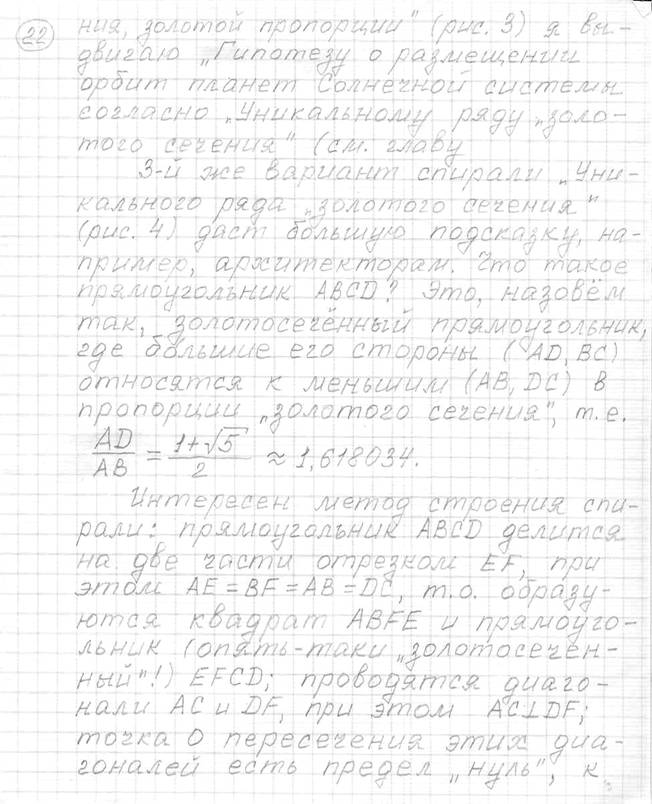 22
ния, золотой пропорции" (рис. 3) я вы-
двигаю „Гипотезу о размещении
орбит планет Солнечной системы
согласно „Уникальному ряду „золо-
того сечения" (см. главу
3-й же вариант спирали „Уни-
кального ряда „золотого сечения"
(рис. 4) даст большую подсказку, на-
пример, архитекторам. Что такое
прямоугольник ABCD? Это, назовём
так, золотосечённый прямоугольник,
где большие его стороны (AD, BC)
относятся к меньшим (AB, DC) в
пропорции „золотого сечения", т.е.
AD/AB = (1+√5)/2 ≈ 1,618034.
Интересен метод строения спи-
рали: прямоугольник ABCD делится
на две части отрезком EF, при
этом AE = BF = AB = DC, т.о. образу-
ются квадрат ABFE и прямоуго-
льник (опять-таки „золотосечен-
ный"!) EFCD; проводятся диаго-
нали AC и DF, при этом AC⊥DF;
точка O пересечения этих диа-
гоналей есть предел „нуль", к